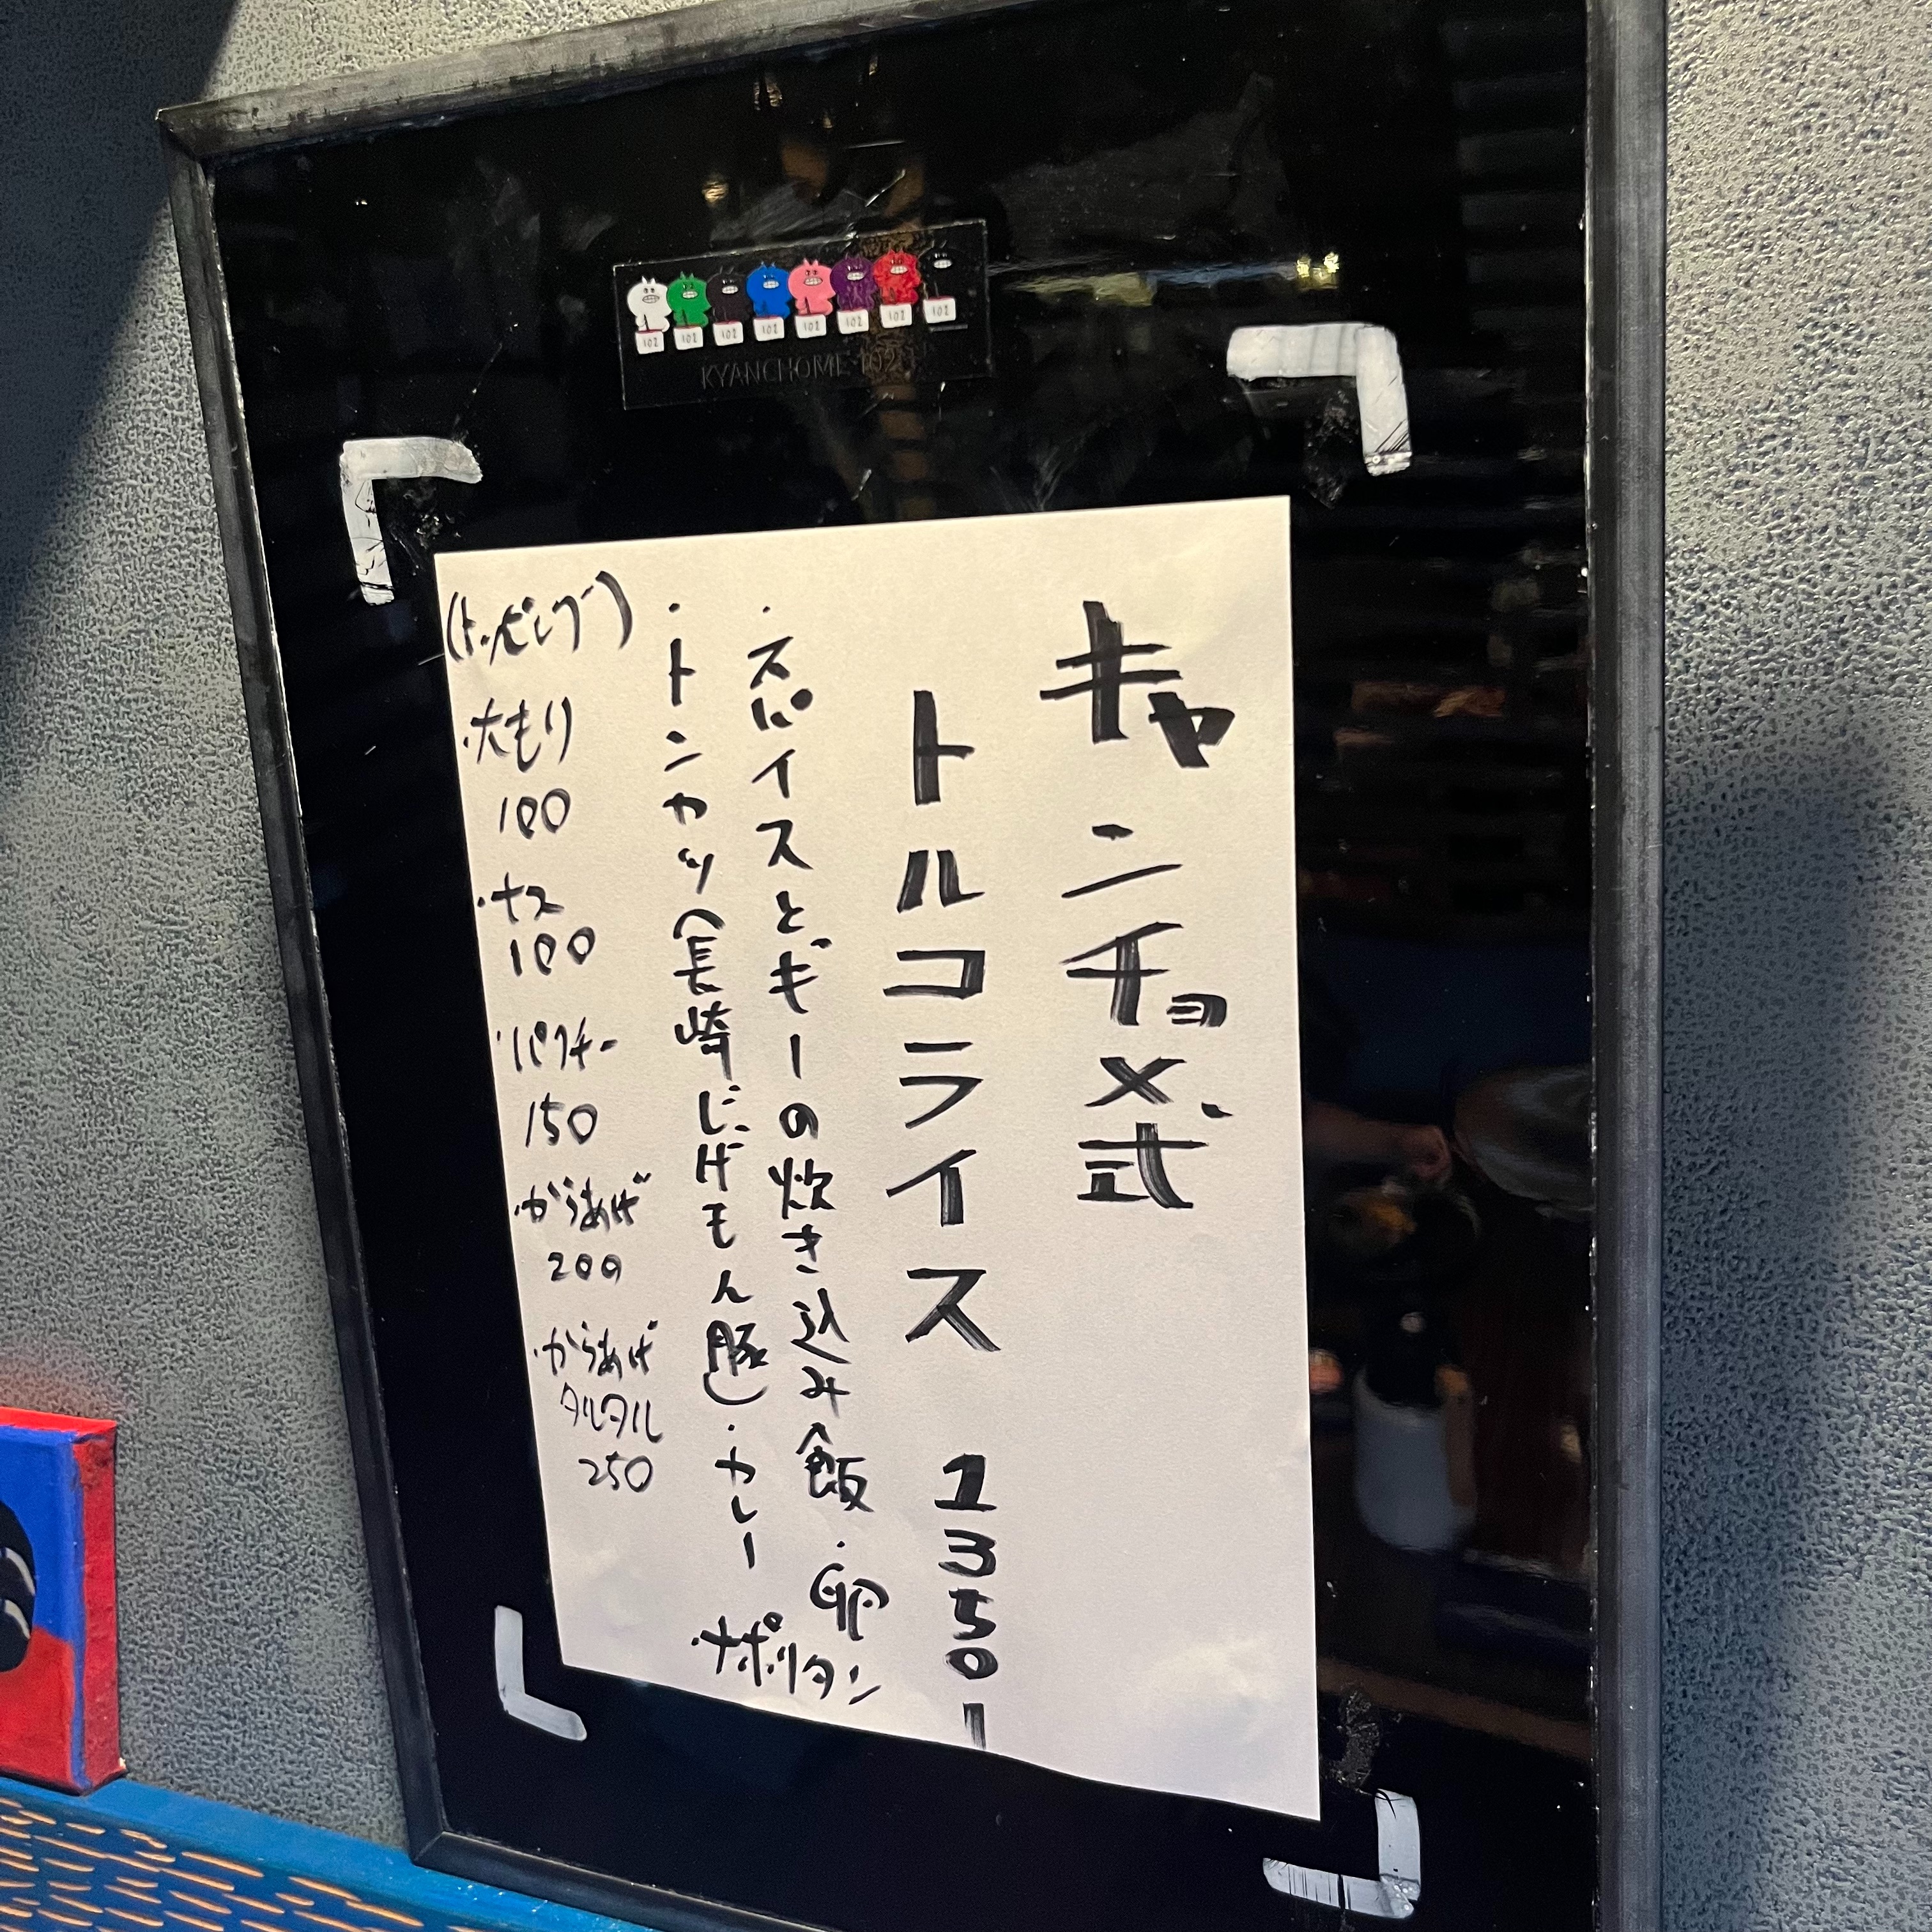 102 102 102 102 102 102 102 102
KYANCHOME 102
キャンチョメ式
トルコライス 1350 ー
・スパイスとギーの炊き込み飯・卵
・トンカツ(長崎じげもん豚)・カレー
・ナポリタン
(トッピング)
・大もり
100
・ナス
100
・パクチー
150
・からあげ
200
・からあげ
タルタル
250